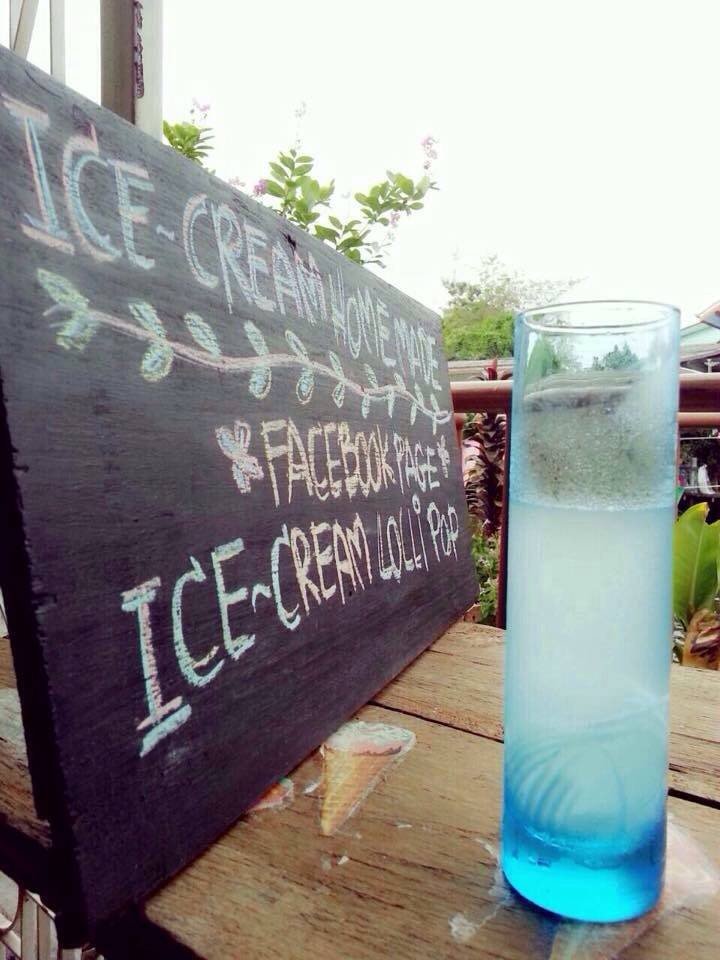 ICE~CREAM HOMEMADE
FACEBOOK PAGE
ICE~CREAM LOLLiPOP